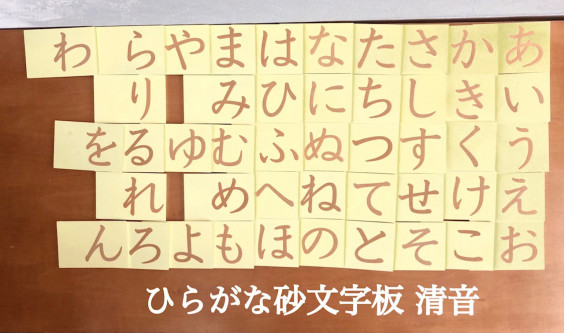 あいうえお
かきくけこ
さしすせそ
たちつてと
なにぬねの
はひふへほ
まみむめも
やゆよ
らりるれろ
わをん
ひらがな砂文字板 清音